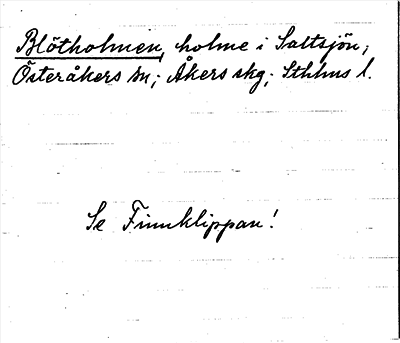 Blötholmen, holme i Saltsjön,
Österåkers sn; Åkers skg; Sthlms l.
Se Finnklippan!